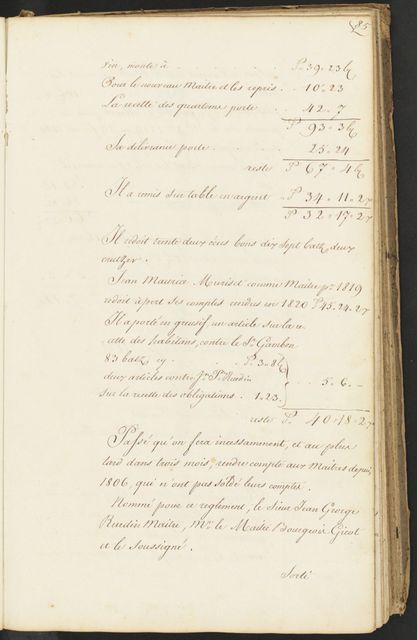 85
vin, monte à P. 39 . 23 ¼
Pour le nouveau Maitre et les repris . . 10 . 23
La recette des quarterons porte . 42 . 7
P 93 . 3 ¼
Sa delivrance porte . . 25 . 24
reste P 67 . 4 ¼
Il a remis sur table en argent P 34 . 11 . 2 7
P 32 . 17 . 2 7
Il redoit trente deux écus bons dix sept batz deux
creutzer .
Jean Maurice Muriset comme Maitre pr 1819
redoit à port ses comptes rendus en 1820 P 45 . 24 . 2 7
Il a porté en greusif un article sur la
ette des habitans, contre le Sr Gambon
83 batz cy . . . P. 3 . 8 ¼
deux articles contre Jn Pr Ruedin
sur la recette des obligations . 1 . 23 . 5 . 6 . —
reste P. 40 . 18 . 2 7
Passé qu'on fera incessamment, et au plus
tard dans trois mois, rendre compte aux Maitres depuis
1806, qui n'ont pas soldé leurs comptes .
Nommé pour ce reglement, le Sieur Jean George
Ruedin Maitre, Mr. le Maitre Bourgeois Gicot
et le soussigné .
Sorti